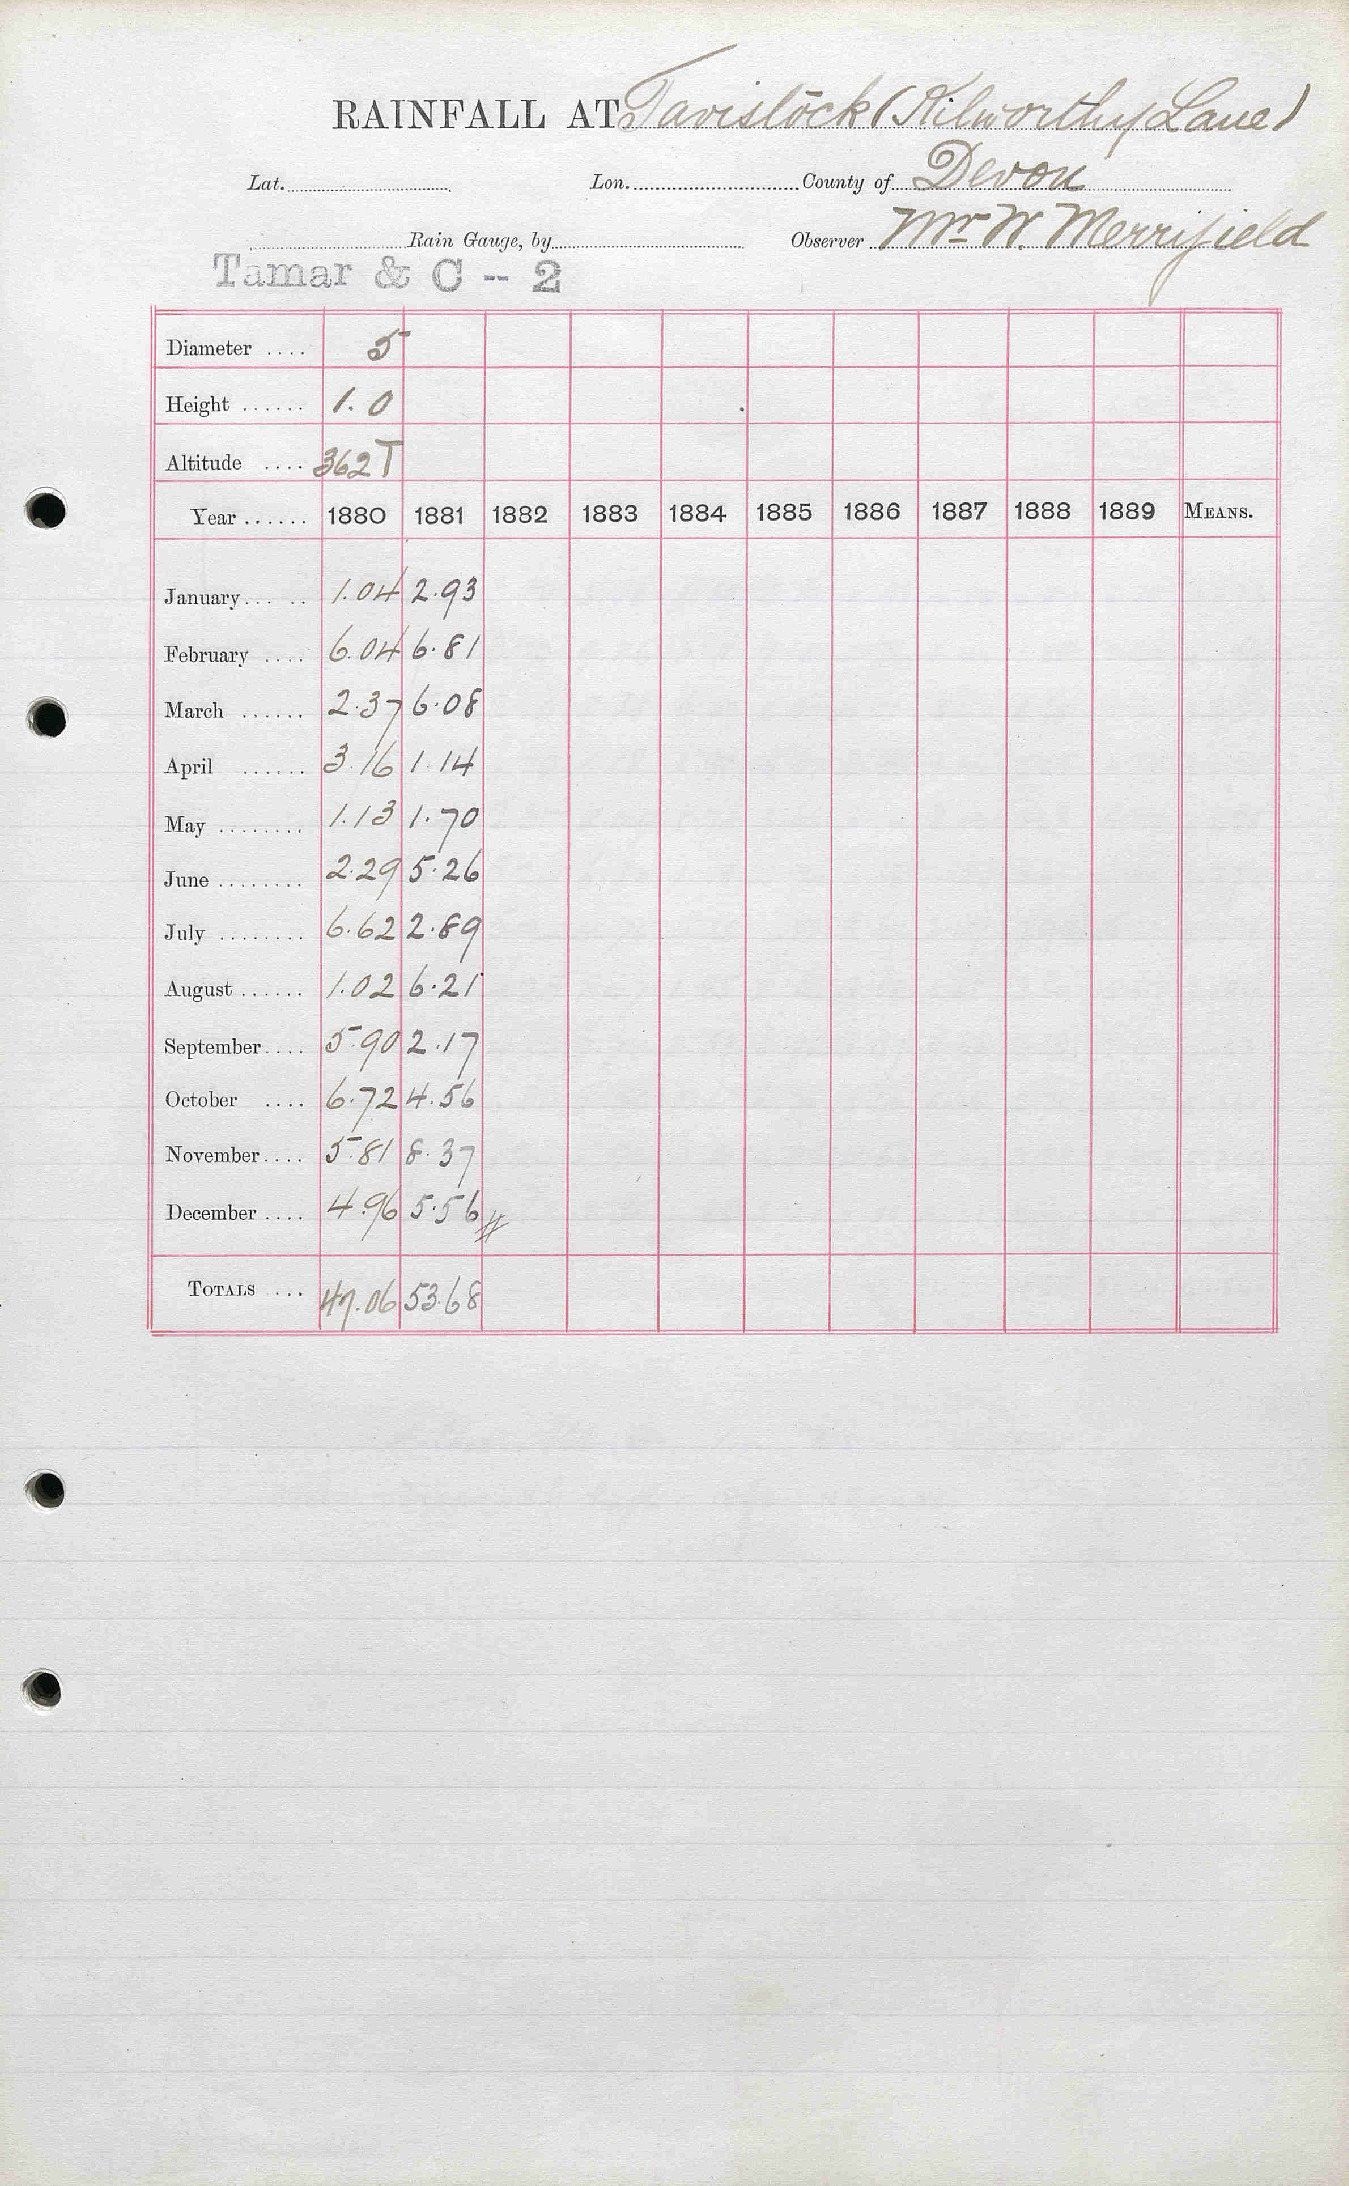 RAINFALL AT Tavistock (Kilworthy Lane)
Lat. Lon. County of Devon
Rain Gauge, by Observer Mr W. Merrifield
Tamar & C -- 2
Diameter .... 5
Height ...... 1.0
Altitude .... 362 T
Year ...... 1880 1881 1882 1883 1884 1885 1886 1887 1888 1889 MEANS.
January ... .. 1.04 2.93
February .... 6.04 6.81
March ...... 2.37 6.08
April ...... 3.16 1.14
May ........ 1.13 1.70
June ........ 2.29 5.26
July ........ 6.62 2.89
August ...... 1.02 6.21
September .... 5.90 2.17
October .... 6.72 4.56
November .... 5.81 8.37
December .... 4.96 5.56 #
TOTALS .... 47.06 53.68